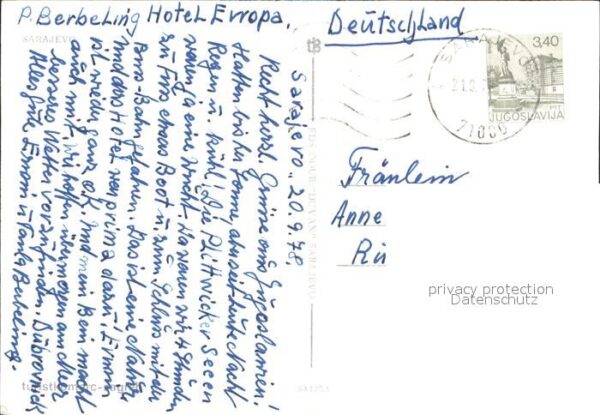 P. Berbeling Hotel Evropa.
Deutschland
SARAJEVO
Sarajevo, 20.9.78.
Recht herzl. Grüße aus Jugoslawien!
Hatten bis her Sonne und seit heute Nacht
Regen u. kühl! Die Plitwicker Seen
waren ja eine Wucht. Da waren wir 4 Stunden
zu Fuss, etwas Boot u. zum Schluss mit der
Bus-Bahn gefahren. Das ist eine Natur
und das Hotel war prima darin! Ermin
ist wieder ganz o.k. und mein Bein macht
auch mit, wir hoffen übermorgen am Meer
besseres Wetter vorzufinden. Dubrovnick
Alles Gute Ermin u. Tante Berbeling.
SARAJEVO
71000
3,40
JUGOSLAVIJA
Fräulein
Anne
Ri
privacy protection
Datenschutz